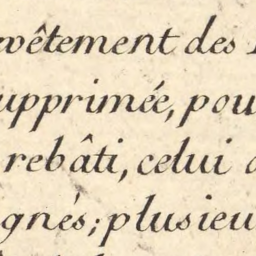 vêtement des
upprimée, pou
rebâti, celui
gnés; plusieu